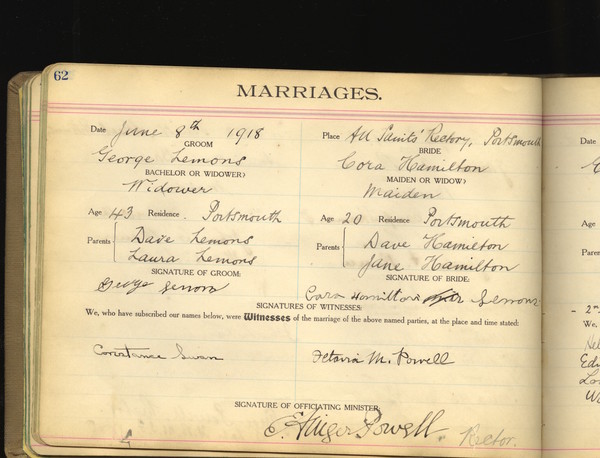 62
MARRIAGES.
Date June 8th 1918 Place All Saints' Rectory, Portsmouth
GROOM BRIDE
George Lemons Cora Hamilton
BACHELOR OR WIDOWER) MAIDEN OR WIDOW)
Widower Maiden
Age 43 Residence. Portsmouth Age 20 Residence Portsmouth
Parents Dave Lemons Parents Dave Hamilton
Laura Lemons Jane Hamilton
SIGNATURE OF GROOM: SIGNATURE OF BRIDE:
George Cora Hamilton
SIGNATURES OF WITNESSES:
We, who have subscribed our names below, were Witnesses of the marriage of the above named parties, at the place and time stated:
Constance Swan M. Powell
SIGNATURE OF OFFICIATING MINISTER,
Powell. Rector.
Date
Age
Paren
We,